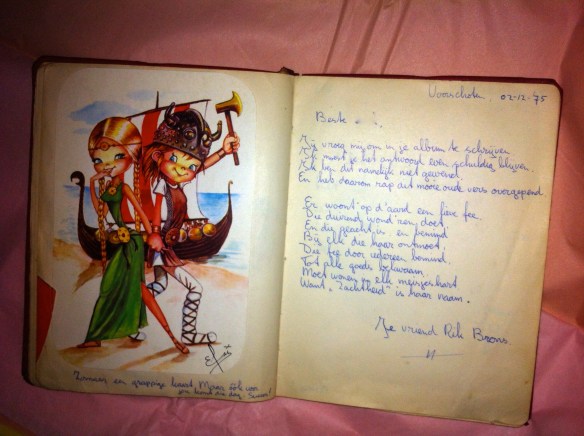 Voorschoten, 02-12-'75
Beste
Jij vroeg mij om in je album te schrijven
Ik moest je het antwoord even schuldig blijven.
Ik ben dit namelijk niet gewend.
En heb daarom rap dit mooie oude vers overgepend.
Er woont op d'aard een fiere fee.
Die duizend wond'ren doet.
En die geacht is, en bemind
Bij elk die haar ontmoet.
Die fee door iedereen bemind.
Tot alle goeds bekwaam.
Moet wonen in elk meisjeshart
Want "Zachtheid" is haar naam.
Je vriend Rik Brons
en grappige kaart,